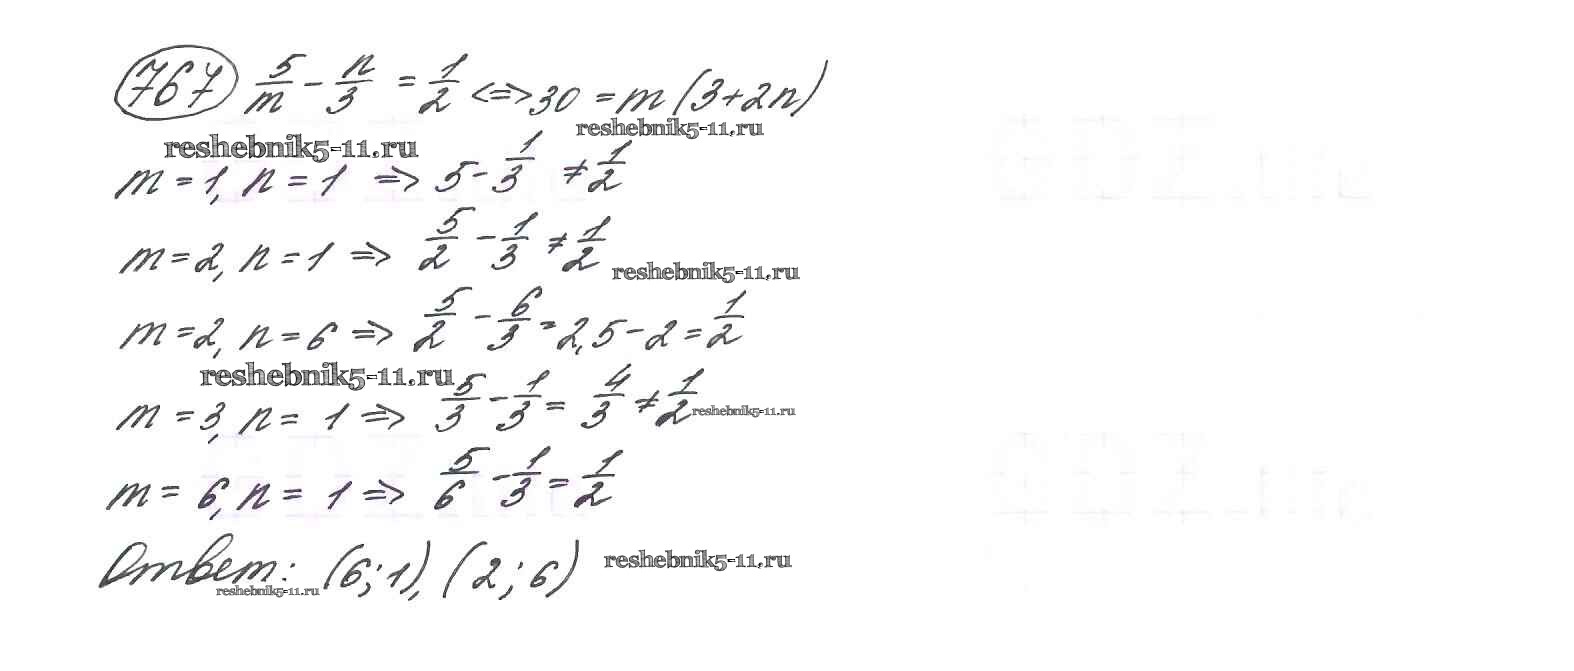 767 5/m - n/3 = 1/2 <=> 30 = m (3+2n)
reshebnik5-11.ru
reshebnik5-11.ru
m = 1, n = 1 => 5 - 1/3 ≠ 1/2
m = 2, n = 1 => 5/2 - 1/3 ≠ 1/2
reshebnik5-11.ru
m = 2, n = 6 => 5/2 - 6/3 = 2,5 - 2 = 1/2
reshebnik5-11.ru
m = 3, n = 1 => 5/3 - 1/3 = 4/3 ≠ 1/2
reshebnik5-11.ru
m = 6, n = 1 => 5/6 - 1/3 = 1/2
Ответ: (6; 1), (2; 6)
reshebnik5-11.ru
reshebnik5-11.ru